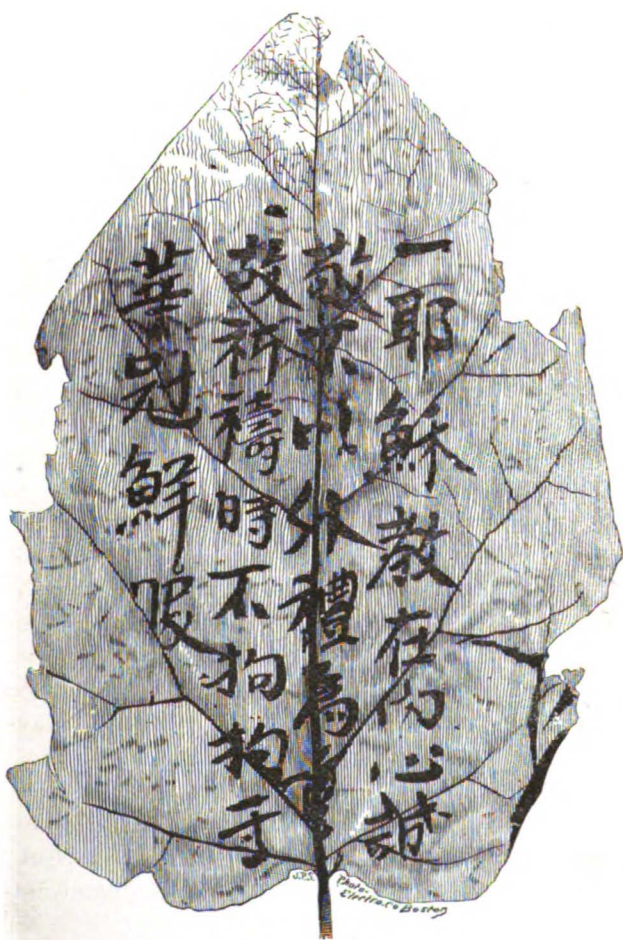 一耶穌教在内心誠
敬不以外禮為重
故祈禱時不拘拘
華冠鮮服
J.P.S.
Photo-
Electro. Co Boston